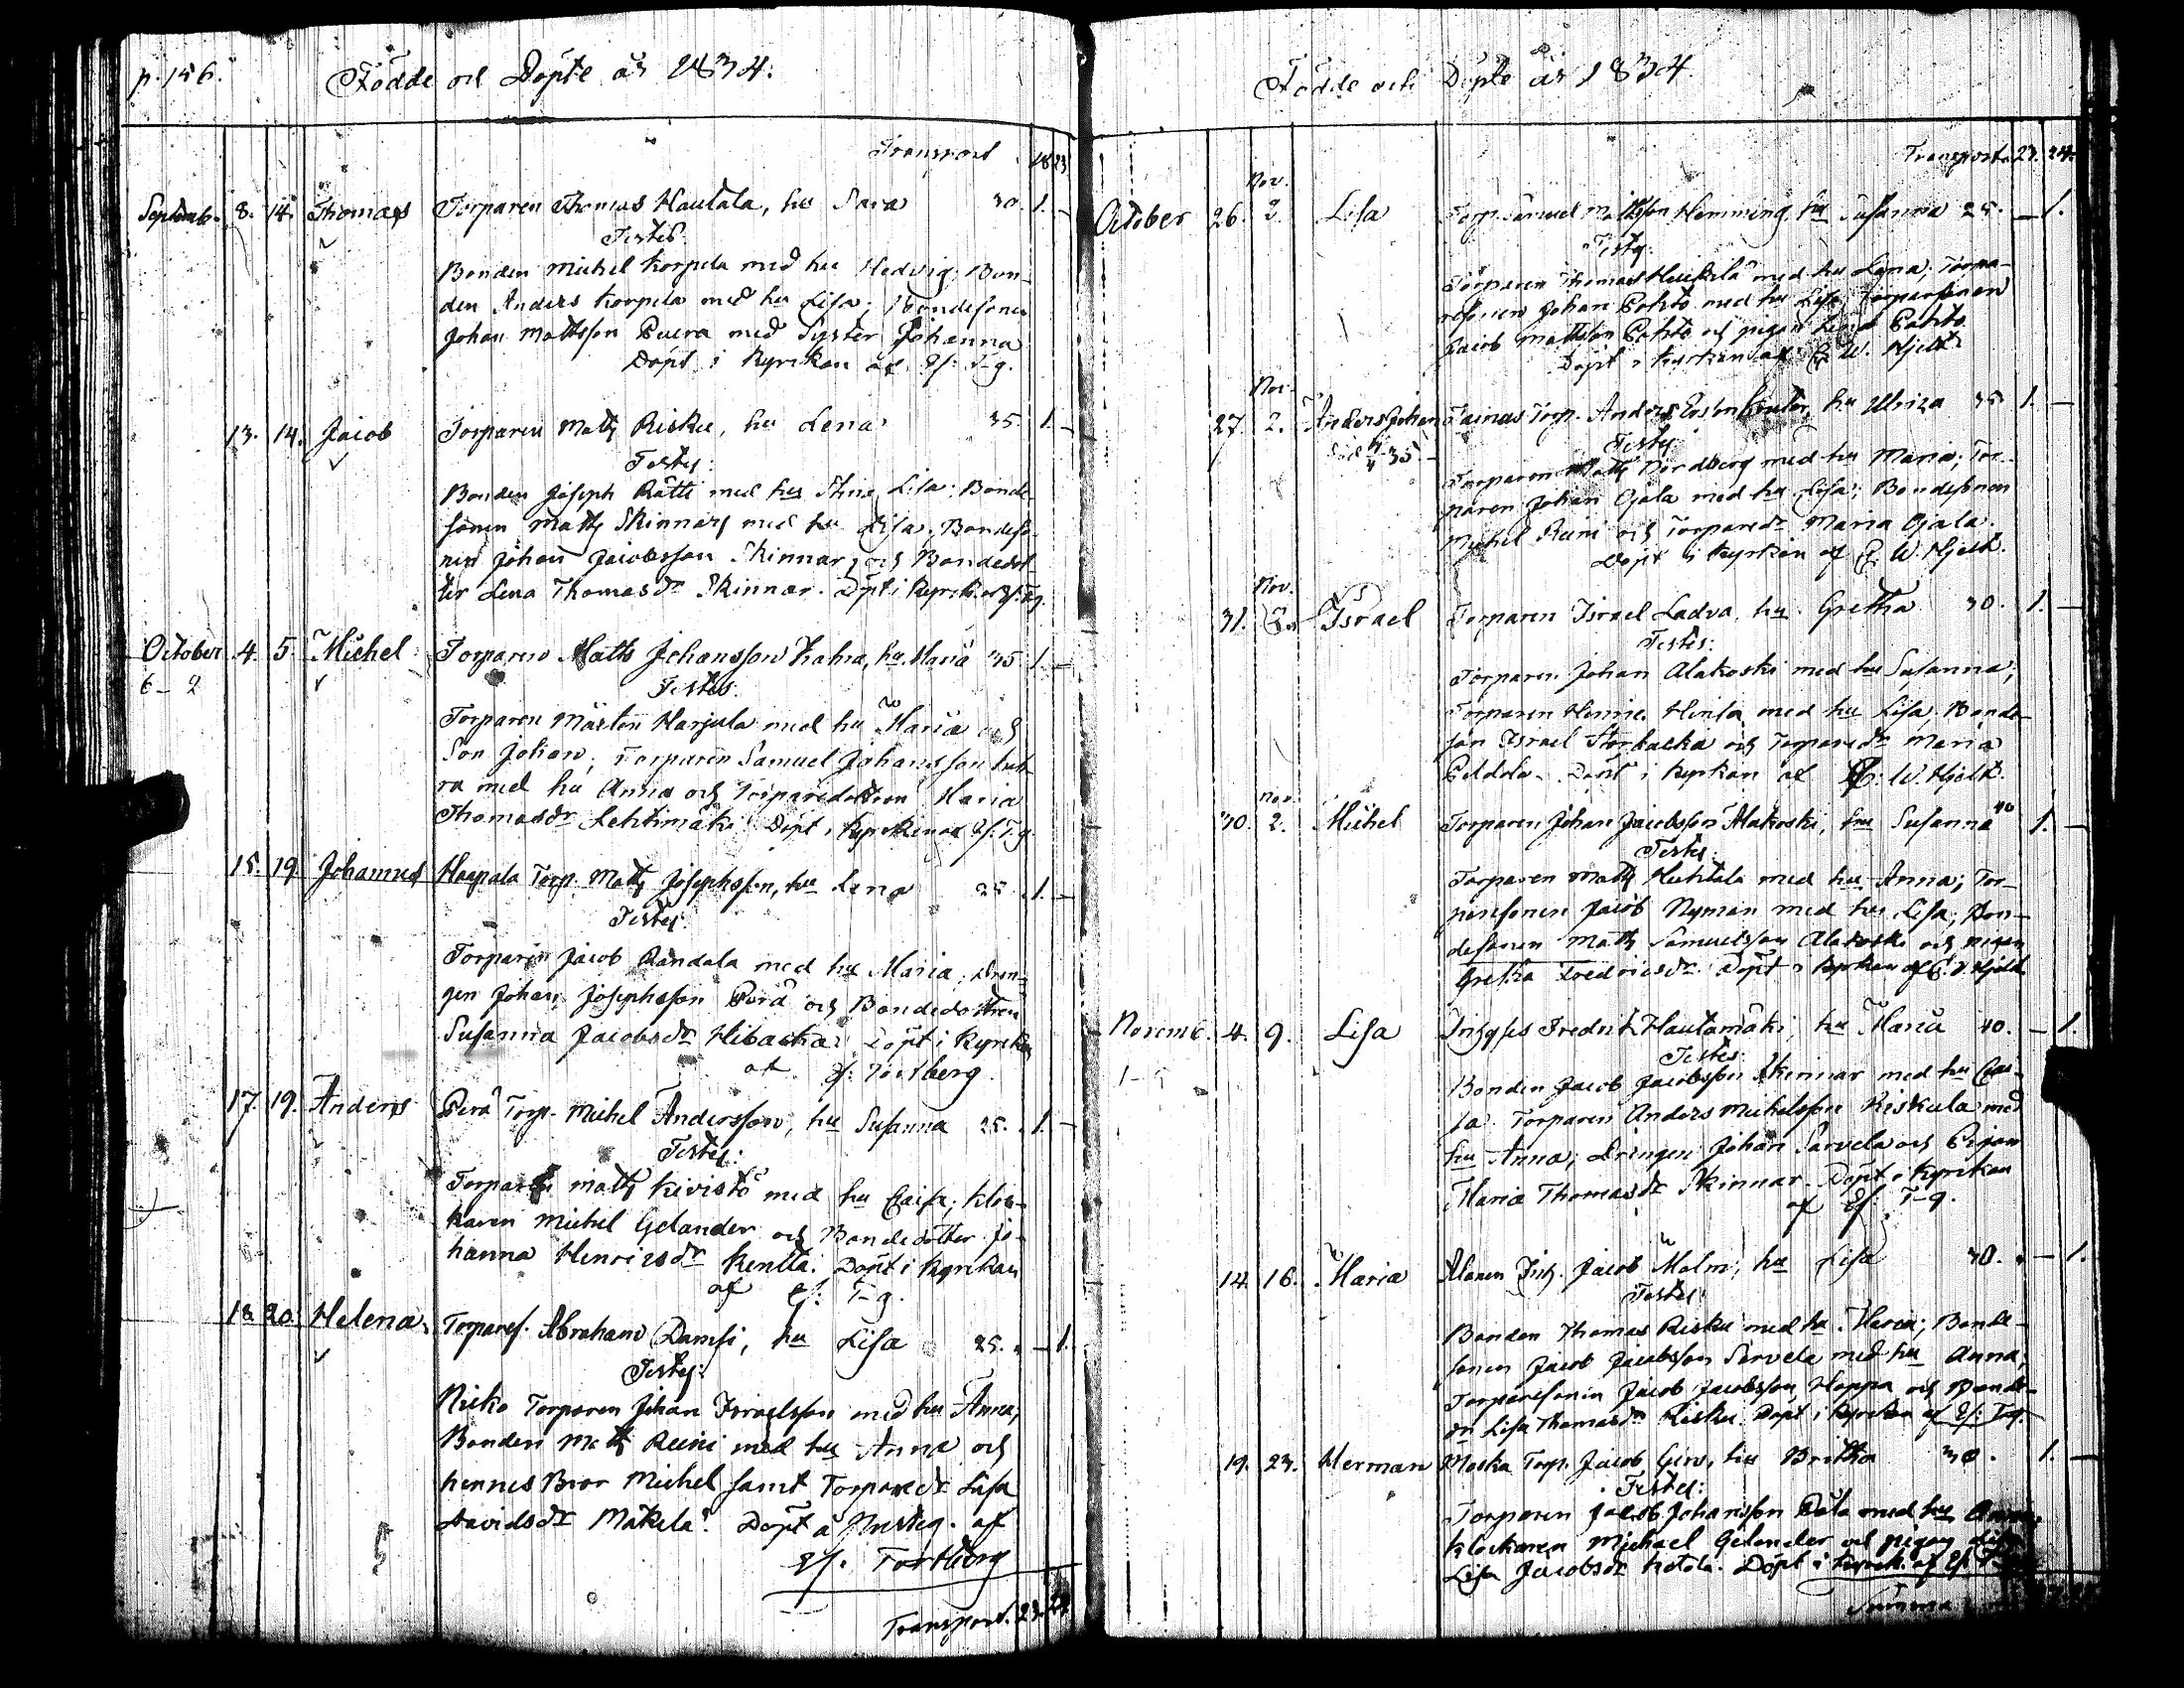 p. 156.
Födde och Döpte år 1834.
Transport 18 23
Septemb. 8. 14. Thomas Torparen Thomas Hautala, hu Sara 30. 1. –
Testes
Bonden Michel Korpela med hu Hedvig; Bon-
den Anders Korpela med hu Lisa; Bondesonen
Johan Mattsson Puera med Syster Johanna
Döpt i Kyrkan af Ef: T-g.
13. 14. Jacob Torparen Matts Risku, hu Lena 35. 1. –
Testes:
Bonden Joseph Rätti med hu Stina Lisa; Bonde-
sonen Matts Skinnar med hu Lisa; Bondeso-
nen Johan Jacobsson Skinnar, och Bondedot-
ter Lena Thomasdr Skinnar. Döpt i Kyrk. af Ef: Tg.
October 4. 5. Michel Torparen Matts Johansson hu Maria 35 1. –
6 – 2
Testes
Torparen Mårten Harjula med hu Maria och
Son Johan; Torparen Samuel Johansson
ra med hu Anna och Torparedottren Maria
Thomasdr Lehtimäki. Döpt i Kyrkan af Ef: T-g
15. 19. Johannes Haapala Torp. Matts Josephsson, hu Lena 25. 1. –
Testes:
Torparen Jacob Randala med hu Maria; Drän-
gen Johan Josephsson Perä och Bondedottren
Susanna Jacobsdr Hibacka. Döpt i Kyrkan
af Ef: Tortberg.
17. 19. Anders Perä Torp. Michel Andersson, hu Susanna 25. 1. –
Testes:
Torparen Matts Kivistö med hu Caisa; Kloc-
karen Michel Gelander och Bondedotter Jo-
hanna Henricsdr Kentta. Döpt i Kyrkan
af Ef: T-g.
18. 20. Helena Torpares. Abraham Damsi, hu Lisa 25. – 1.
Testes:
Torparen Johan Israelsson med hu Anna,
Bonden Matts Reini med hu Anna och
hennes Bror Michel samt Torparedr Lisa
Davidsdr Mäkelä. Döpt å af
Ef. Tortberg
Transport. 23. 24
Födde och Döpte år 1834.
Transport 23. 24.
October 26. Nov. 2. Lisa Torp. Samuel Mattsson Hemming, hu Susanna 25. – 1.
Testes:
Torparen Thomas Heikilä med hu Lena; Torpa-
resonen Johan Pohto med hu Lisa; Torparsonen
Jacob Mattsson Pohto och pigan Pohto
Döpt i Kyrkan af E. W. Hjelt.
27. Nov. 2. Anders Johan Torp. Anders hu Ulrica 35 1. –
Testes:
Torparen Matts Nordberg med hu Maria; Tor-
paren Johan Ojala med hu Lisa; Bondesonen
Michel Reini och Torparedr Maria Ojala.
Döpt i Kyrkan af E. W. Hjelt.
31. Nov. 2. Israel Torparen Israel Ladva, hu Gretha 30. 1. –
Testes:
Torparen Johan Alakoski med hu Susanna;
Torparen Henric Hinsa med hu Lisa, Bonde-
son Israel Storbacka och Torparedr Maria
Döpt i Kyrkan af E. W. Hjelt.
30. Nov. 2. Michel Torparen Johan Jacobsson Alakoski, hu Susanna 40 1. –
Testes:
Torparen Matts Huhtala med hu Anna; Tor-
paresonen Jacob Nyman med hu Lisa; Bon-
desonen Matts Samuelsson Alakoski och pigan
Gretha Fredricsdr. Döpt i Kyrkan af E. W. Hjelt
Novemb. 4. 9. Lisa Fredrik Hautamäki, hu Maria 40. – 1.
Testes:
Bonden Jacob Jacobsson Skinnar med hu Cai-
sa. Torparen Anders Michelsson Kiskula med
hu Anna; Drängen Johan Sarvela och Pigan
Maria Thomasdr Skinnar. Döpt i Kyrkan
af Ef: T-g.
14. 16. Maria Jacob Malm, hu Lisa 30. – 1.
Testes:
Bonden Thomas Risku med hu Maria; Bonde-
sonen Jacob Jacobsson Sarvela med hu Anna;
Torparesonen Jacob Jacobsson Hoppa och Bonde-
dr Lisa Thomasdr Risku. Döpt i Kyrkan af Ef: T-g.
19. 23. Herman Torp. Jacob hu Britha 30. 1. –
Testes:
Torparen Jacob Johansson med hu Anna
klockaren Michael Gelander och pigan
Lisa Jacobsdr Kotola. Döpt i Kyrk. af Ef.
Summa